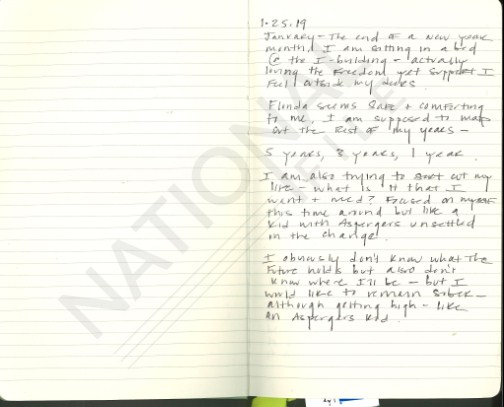 1.25.19
January - The end of a new year
month I am sitting in a bed
@ the I-building - actually
living the freedom yet support I
feel outside my
Florida seems safe + comforting
to me. I am supposed to map
out the rest of my years -
5 years, 3 years, 1 year.
I am also trying to sort out my
life - what is it that I
want + need? Focused on myself
this time around but like a
kid with Aspergers unsettled
in the change.
I obviously don't know what the
future holds but also don't
know where I'll be - but I
would like to remain sober -
although getting high - like
an Aspergers kid.
NATIONAL